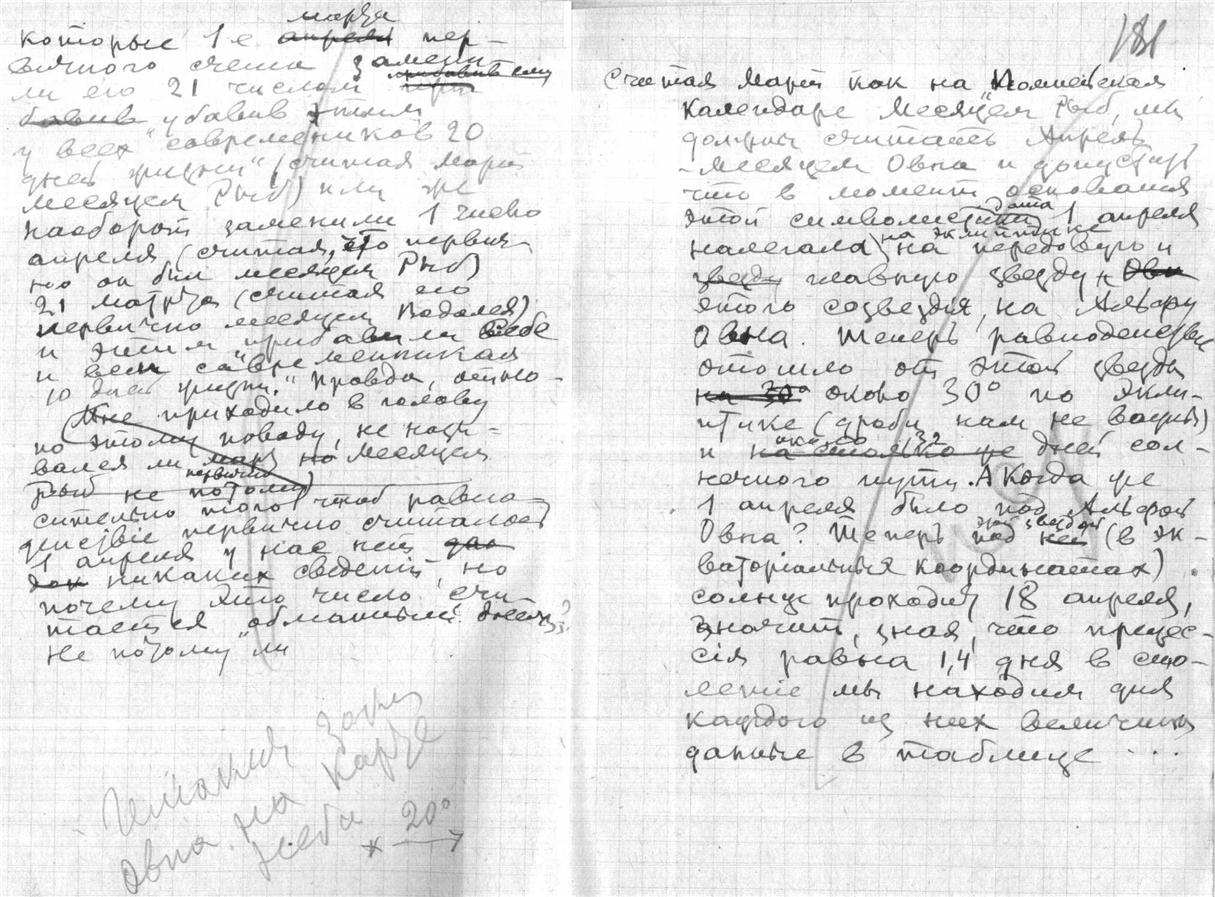 марта
которые 1-е апреля пер-
вичного счета замени-
прибавив ему
ли его 21 числом при-
бавив убавив этим
у всех "современников 20
дней жизни" (считая март
месяцем Рыб) или же
наоборот заменили 1 число
апреля (считая, что первич-
но он был месяцем Рыб)
21 марта (считая его
первично месяцем Водолея)
и этим прибавили себе
и всем "современникам
10 дней жизни." Правда, относ-
Мне приходило в голову
по этому поводу, не назы-
вался ли март но месяцем
первично
Рыб не потому
сительно того чтоб равно-
денствіе первично считалось
1 апреля у нас нет даже
никаких сведеній, но
почему это число счи-
тается "обманным днем"?
Не потому ли
Овна на карте
неба
× 20°
181
Считая Март как на Помпейском
календаре месяцем Рыб, мы
должны считать Апрель
месяцем Овна и допустить
что в момент основания
дата
этой символистики 1 апреля
на эклиптике
налегала на передовую и
звезду главную звезду
этого созвездия, на Альфу
Овна. Теперь равноденствие
отошло от этой звезды
на 30° около 30° по экли-
птике (дроби нам не важны)
и на столько же дней сол-
нечного пути. А когда же
1 апреля было под Альфой
этой звездой
Овна? Теперь под ней (в эк-
ваторіальных координатах)
солнце проходит 18 апреля,
значит, зная, что прецес-
сія равна 1,4 дня в сто-
летіе мы находим для
каждого из них величины
данные в таблице ...